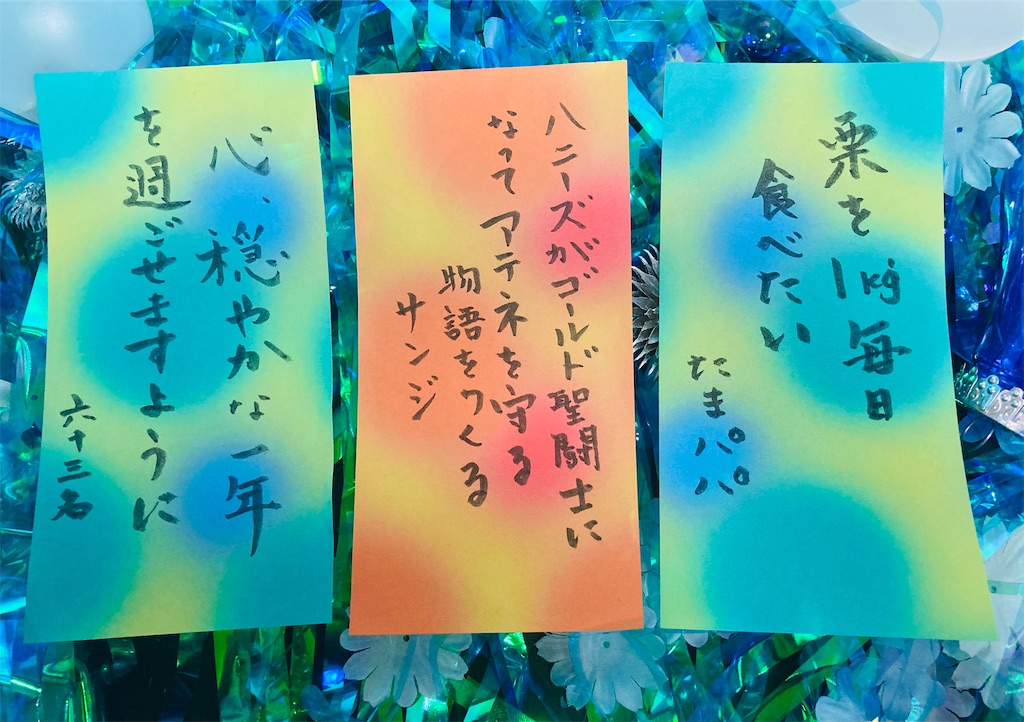 栗を1kg毎日
食べたい
たまパパ
ハニーズがゴールド聖闘士に
なってアテネを守る
物語をつくる
サンジ
心、穏やかな一年
を過ごせますように
六十三名